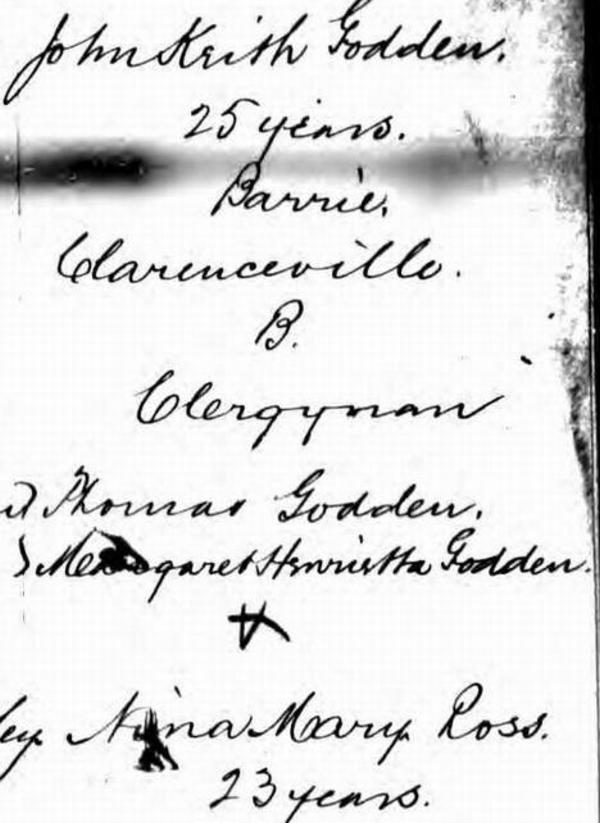 John Keith Godden.
25 years.
Barrie.
Clarenceville.
B.
Clergyman
Thomas Godden.
Margaret Henrietta Godden.
Nina Mary Ross.
23 years.